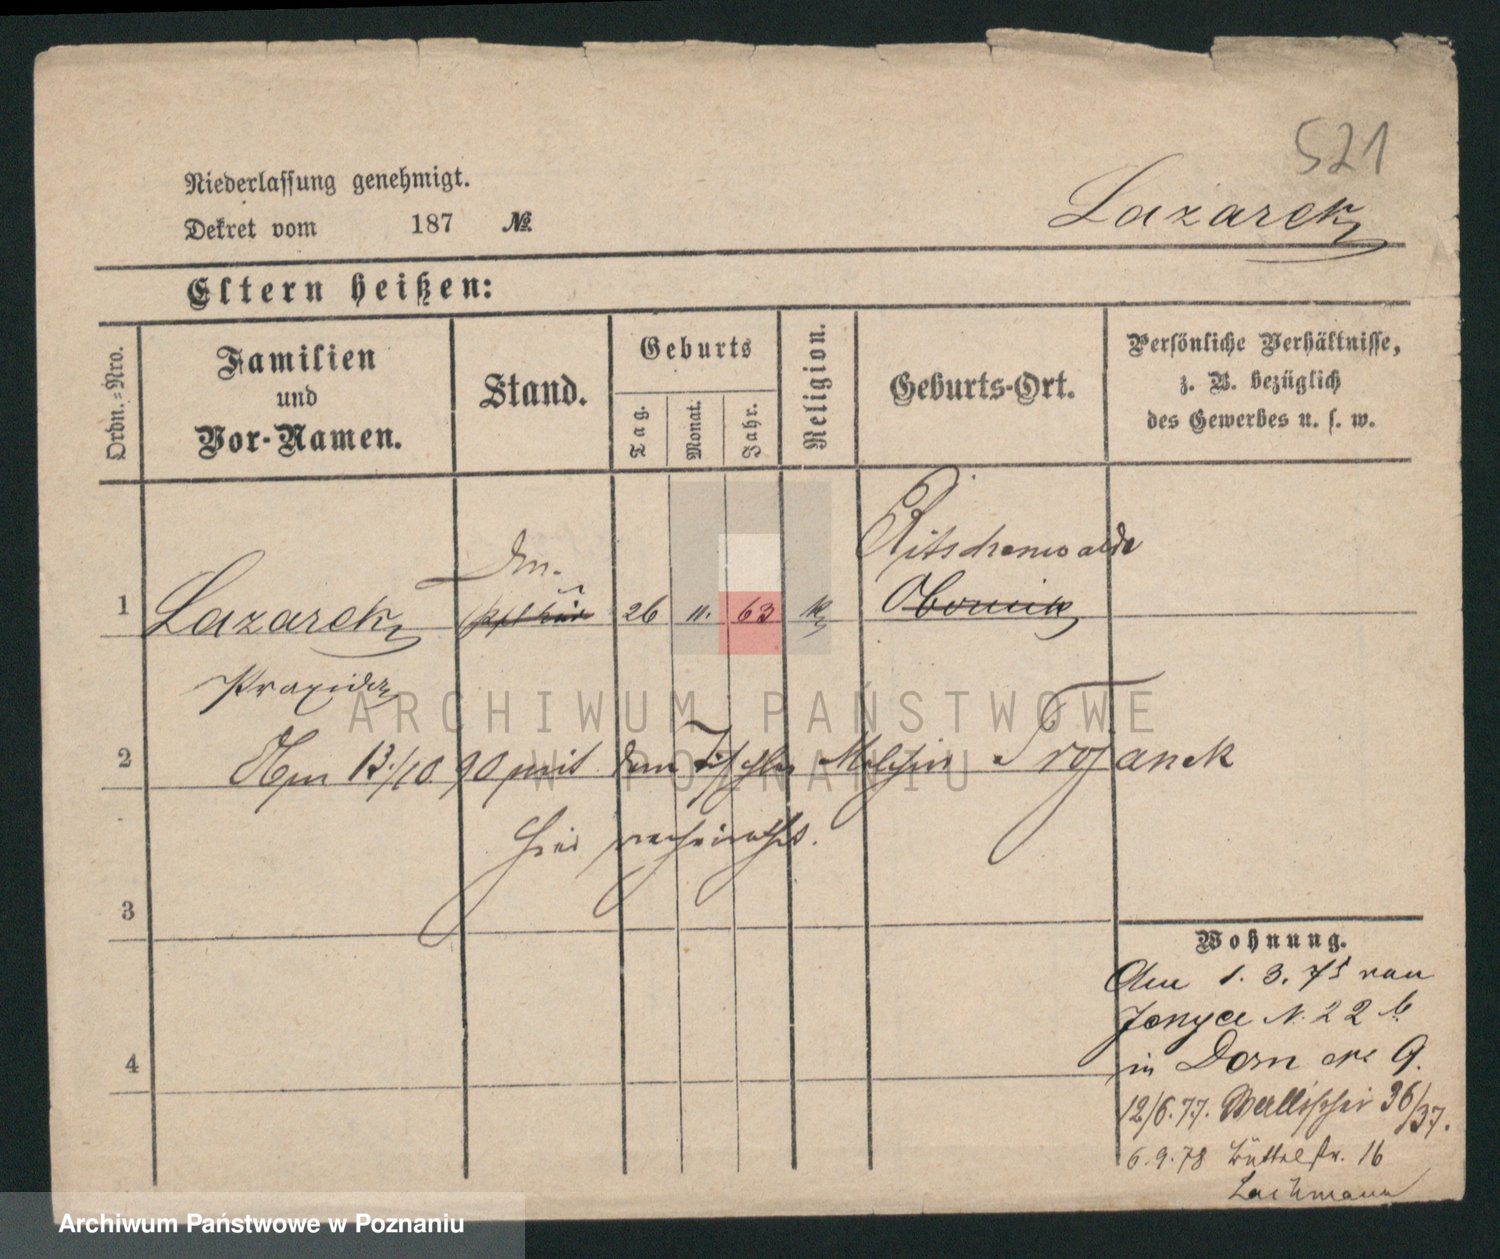 521
Niederlassung genehmigt.
Dekret vom 187 №
Lazarek
Eltern heißen:
Ordn.-Nro.
Familien
und
Vor-Namen.
Stand.
Geburts
Tag.
Monat.
Jahr.
Religion.
Geburts-Ort.
Persönliche Verhältnisse,
z. B. bezüglich
des Gewerbes u. s. w.
Ritschenwalde
1 Lazarek 26 11. 63 k Obornik
Praxeda
ARCHIWUM PAŃSTWOWE
W POZNANIU
2 Am 13/10 90 mit dem Tischler Melchior Trojanek
hier verheirathet.
3
Wohnung.
Am 1. 3. 75 von
Zonyce N. 22 b
4 in Dom No 9.
12/6. 77. Wallischei 36/37.
6. 9. 78 Büttelstr. 16
Lachmann
Archiwum Państwowe w Poznaniu